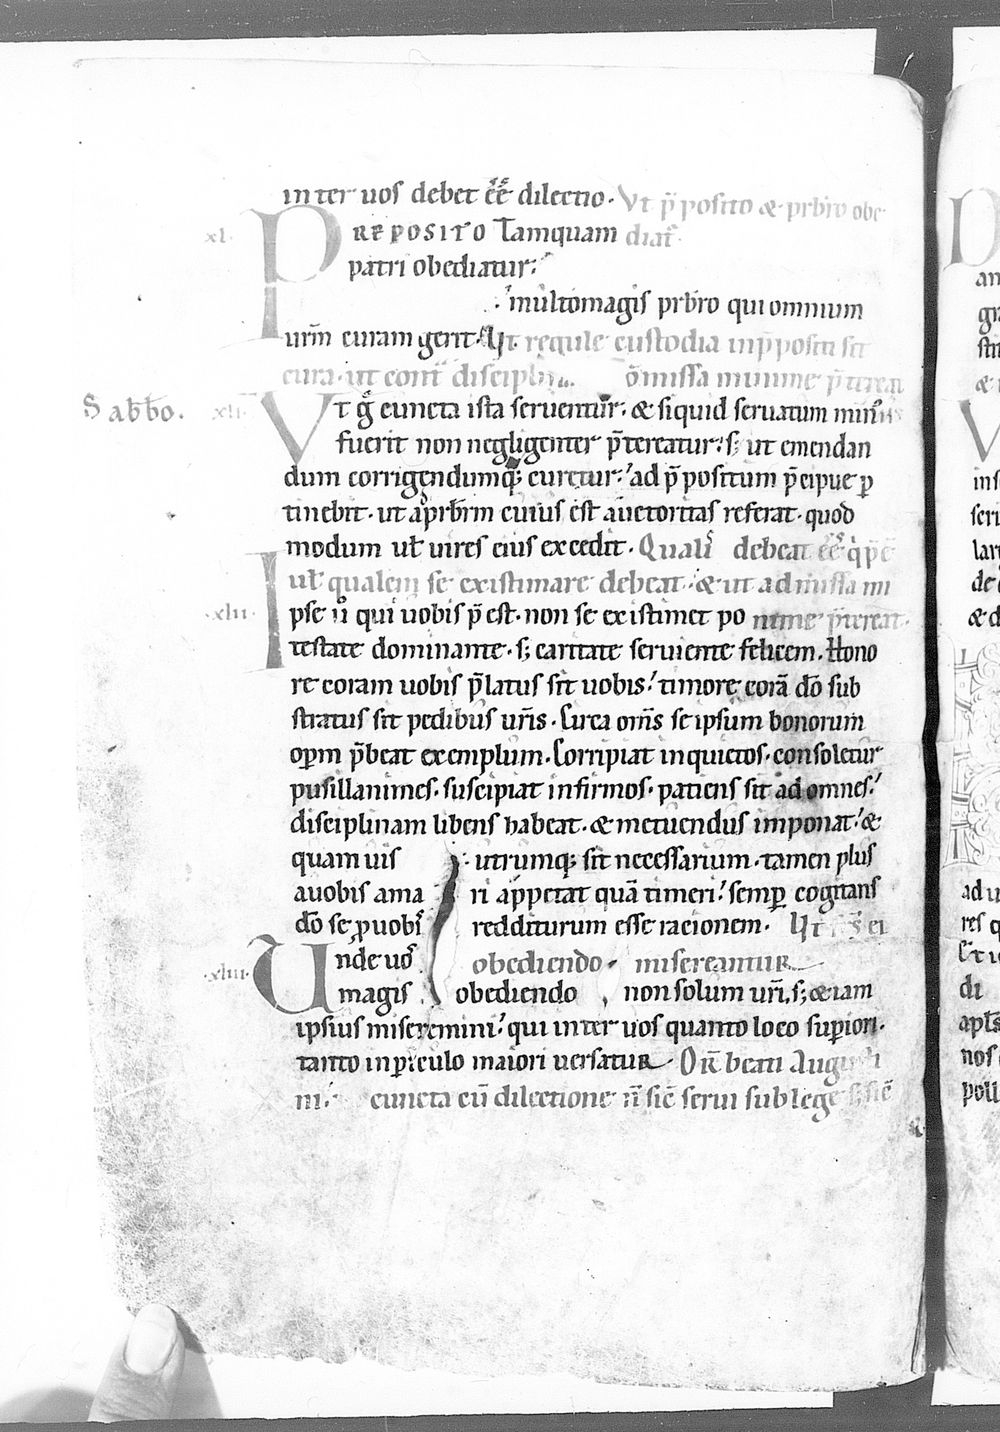 inter uos debet ee͂ dilectio. Vt p̄posito & prb̄ro obe
xl. PREPOSITO Tamquam diat̄.
patri obediatur;
multomagis prb̄ro qui omnium
urm̄ curam gerit. Vt regule custodia inp̄positi sit
cura. ut
omissa minime
Sabb̄o. xli. Vt g̊ cuncta ista seruentur; & siquid seruatum minus
fuerit non negligenter p̄tereatur; s; ut emendan
dum corrigendumq; curetur; ad p̄positum p̄cipue p
tinebit. ut a prb̄rm cuius est auctoritas referat. quod
modum ul̄ uires eius excedit. Qualē debeat ee͂
ul̄ qualem se existimare debeat. & ut admissa mi
xlii. Ipse u̇ qui uobis p̄est. non se existimet po nime p̄tereat.
testate dominante. s; caritate seruiente felicem. Hono
re coram uobis p̄latus sit uobis; timore corā dō sub
stratus sit pedibus urīs. Circa om̄s se ipsum bonorum
opm̄ p̄beat exemplum. Corripiat inquietos. consoletur
pusillanimes. suscipiat infirmos. patiens sit ad omnes;
disciplinam libens habeat. & metuendus imponat; &
quam uis utrumq; sit necessarium. tamen plus
auobis ama ri appetat quā timeri; semp cogitans
dō se p uobis redditurum esse racionem. Vt
xliii. Unde uos obediendo misereantur
magis obediendo non solum urī, s; & iam
ipsius miseremini; qui inter uos quanto loco supiori.
tanto in piculo maiori uersatur Or̄ beati Augusti
ni. cuncta cū dilectione n̄ sic̄ serui sub lege s; sic̄